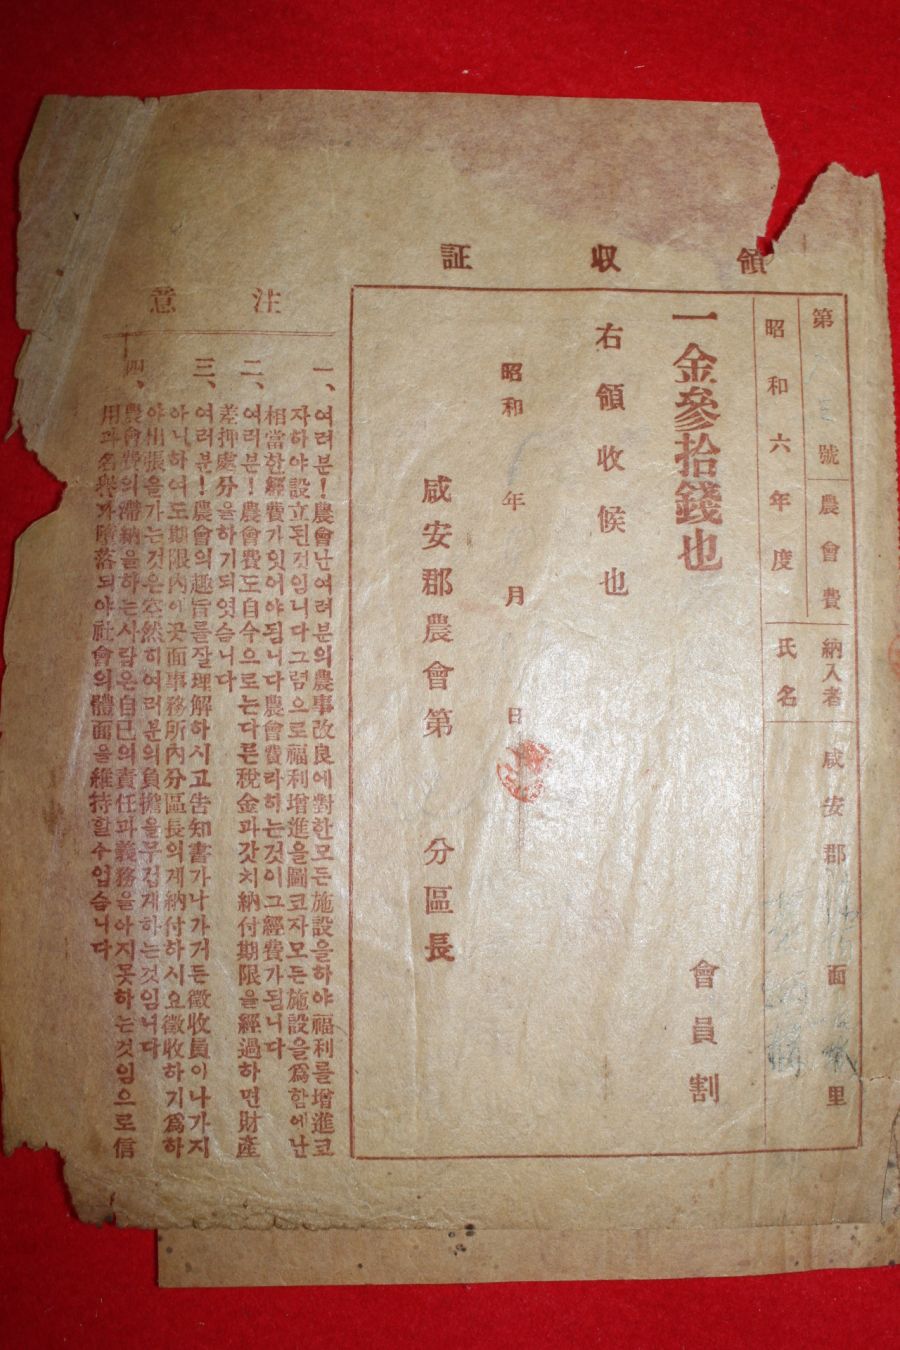 領收証
第 號 農會費
納入者 咸安郡 面 里
昭和六年度
氏名
一金參拾錢也 會員割
右領收候也
昭和 年 月 日
咸安郡農會第 分區長
注意
一、여러분！農會난여러분의農事改良에對한모든施設을하야福利를增進코
자하야設立된것입니다그럼으로福利增進을圖코자모든施設을爲함에난
相當한經費가잇어야됨니다農會費라하는것이그經費가됨니다
二、여러분！農會費도自今으로는다른稅金과갓치納付期限을經過하면財產
差押處分을하기되엿슴니다
三、여러분！農會의趣旨를잘理解하시고告知書가나가거든徵收員이나가지
아니하여도期限內에곳面事務所內分區長의게納付하시요徵收하기爲하
야出張을가는것은空然히여러분의負擔을무겁게하는것임니다
四、農會費의滯納을하는사람은自己의責任과義務을아지못하는것임으로信
用과名譽가墮落되야社會의體面을維持할수업슴니다